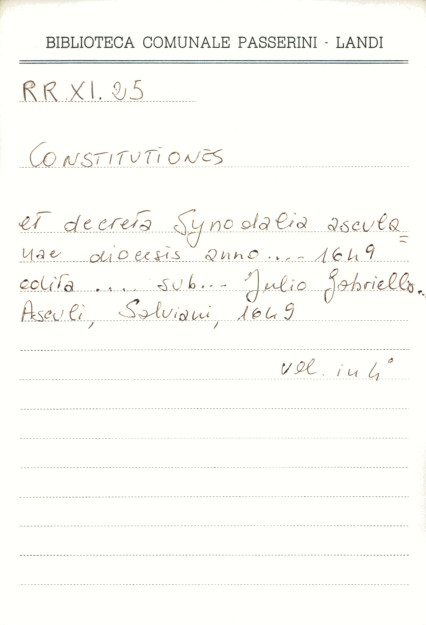 BIBLIOTECA COMUNALE PASSERINI - LANDI
RR.XI.25
CONSTITUTIONES
et decreta Synodalia ascula=
nae diocesis anno.... 1649
edita .... sub... Julio Gabriello..
Asculi, Salviani, 1649
vol. in 4°